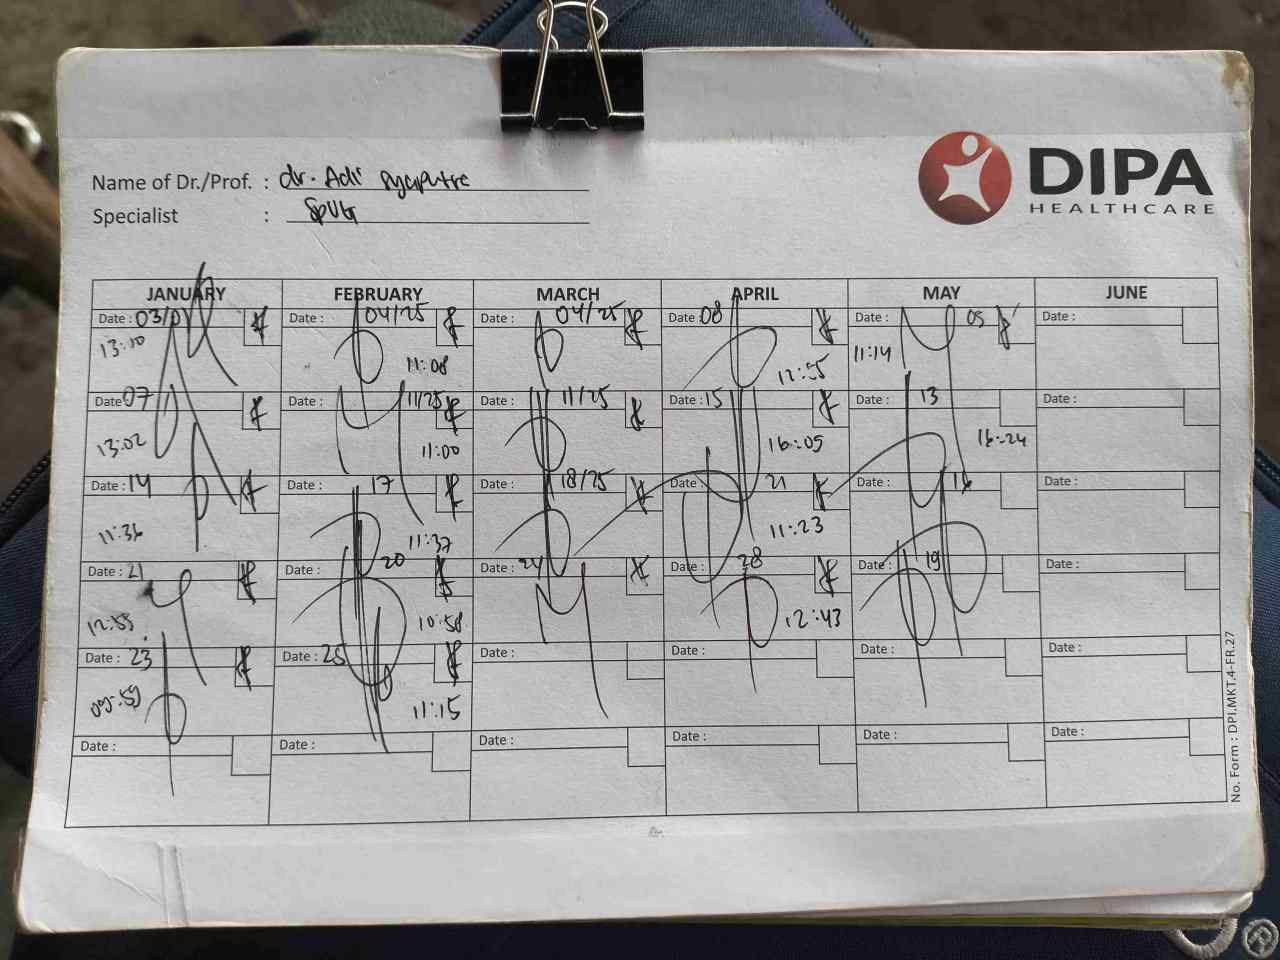 DIPA
HEALTHCARE
Name of Dr./Prof. : dr. Adi Syaputra
Specialist :
JANUARY FEBRUARY MARCH APRIL MAY JUNE
Date : 03/01 Date : 04/25 Date : 04/25 Date : 08 Date : 05 Date :
13:00 11:08 12:55 11:14
Date : 07 Date : 11/25 Date : 11/25 Date : 15 Date : 13 Date :
13:02 11:00 16:05 16:24
Date : 14 Date : 17 Date : 18/25 Date : 21 Date : 16 Date :
11:36 11:37 11:23
Date : 21 Date : 20 Date : 24 Date : 28 Date : 19 Date :
12:55 10:58 12:43
Date : 23 Date : 25 Date : Date : Date : Date :
09:59 11:15
Date : Date : Date : Date : Date : Date :
No. Form : DPI.MKT.4-FR.27
®